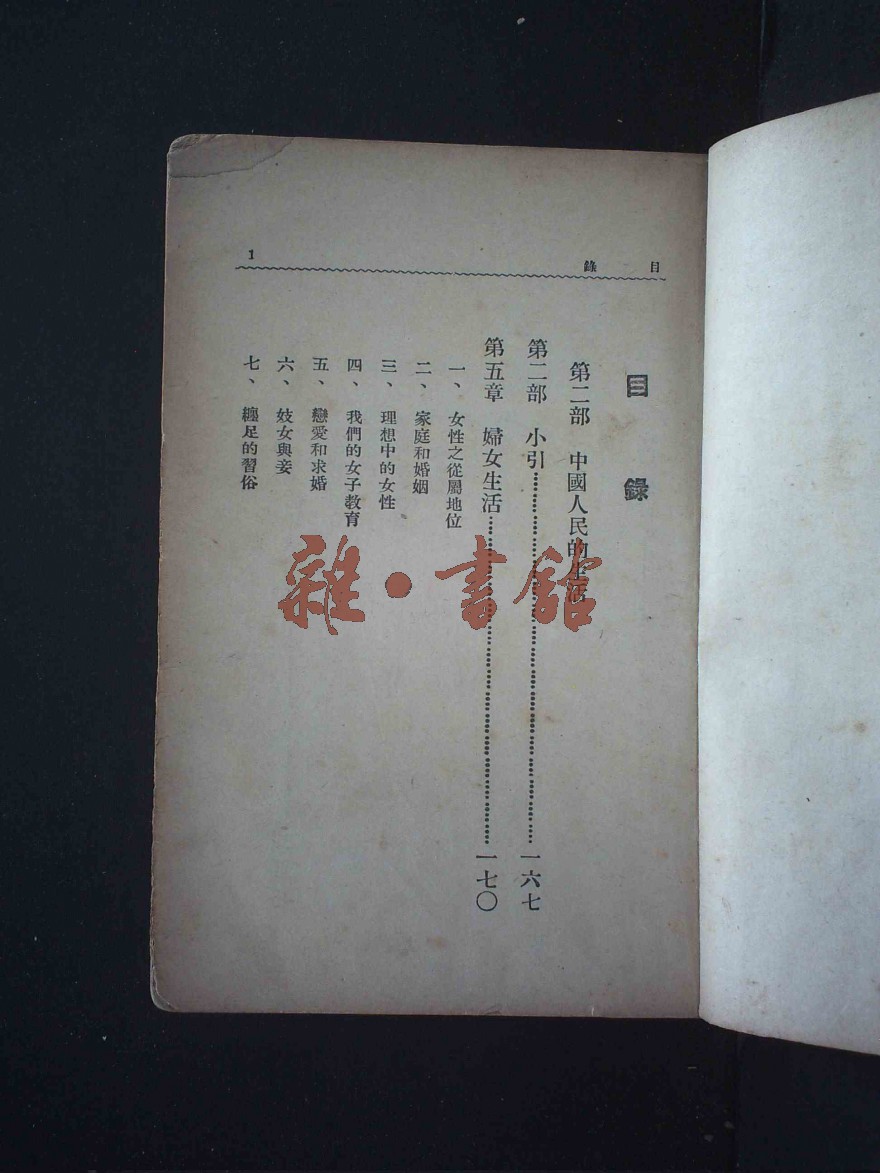 目錄
1
目錄
第二部 中國人民的生活
第二部 小引……一六七
第五章 婦女生活……一七〇
一、女性之從屬地位
二、家庭和婚姻
三、理想中的女性
四、我們的女子教育
五、戀愛和求婚
六、妓女與妾
七、纏足的習俗
雜·書館